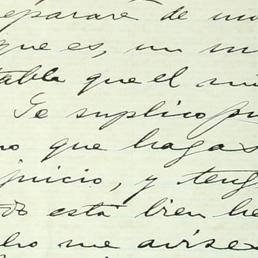 eparare de un
que es, un m
tabla que el m
Te suplico pu
o que hagas
juicio, y teng
do está bien he
ho me avises